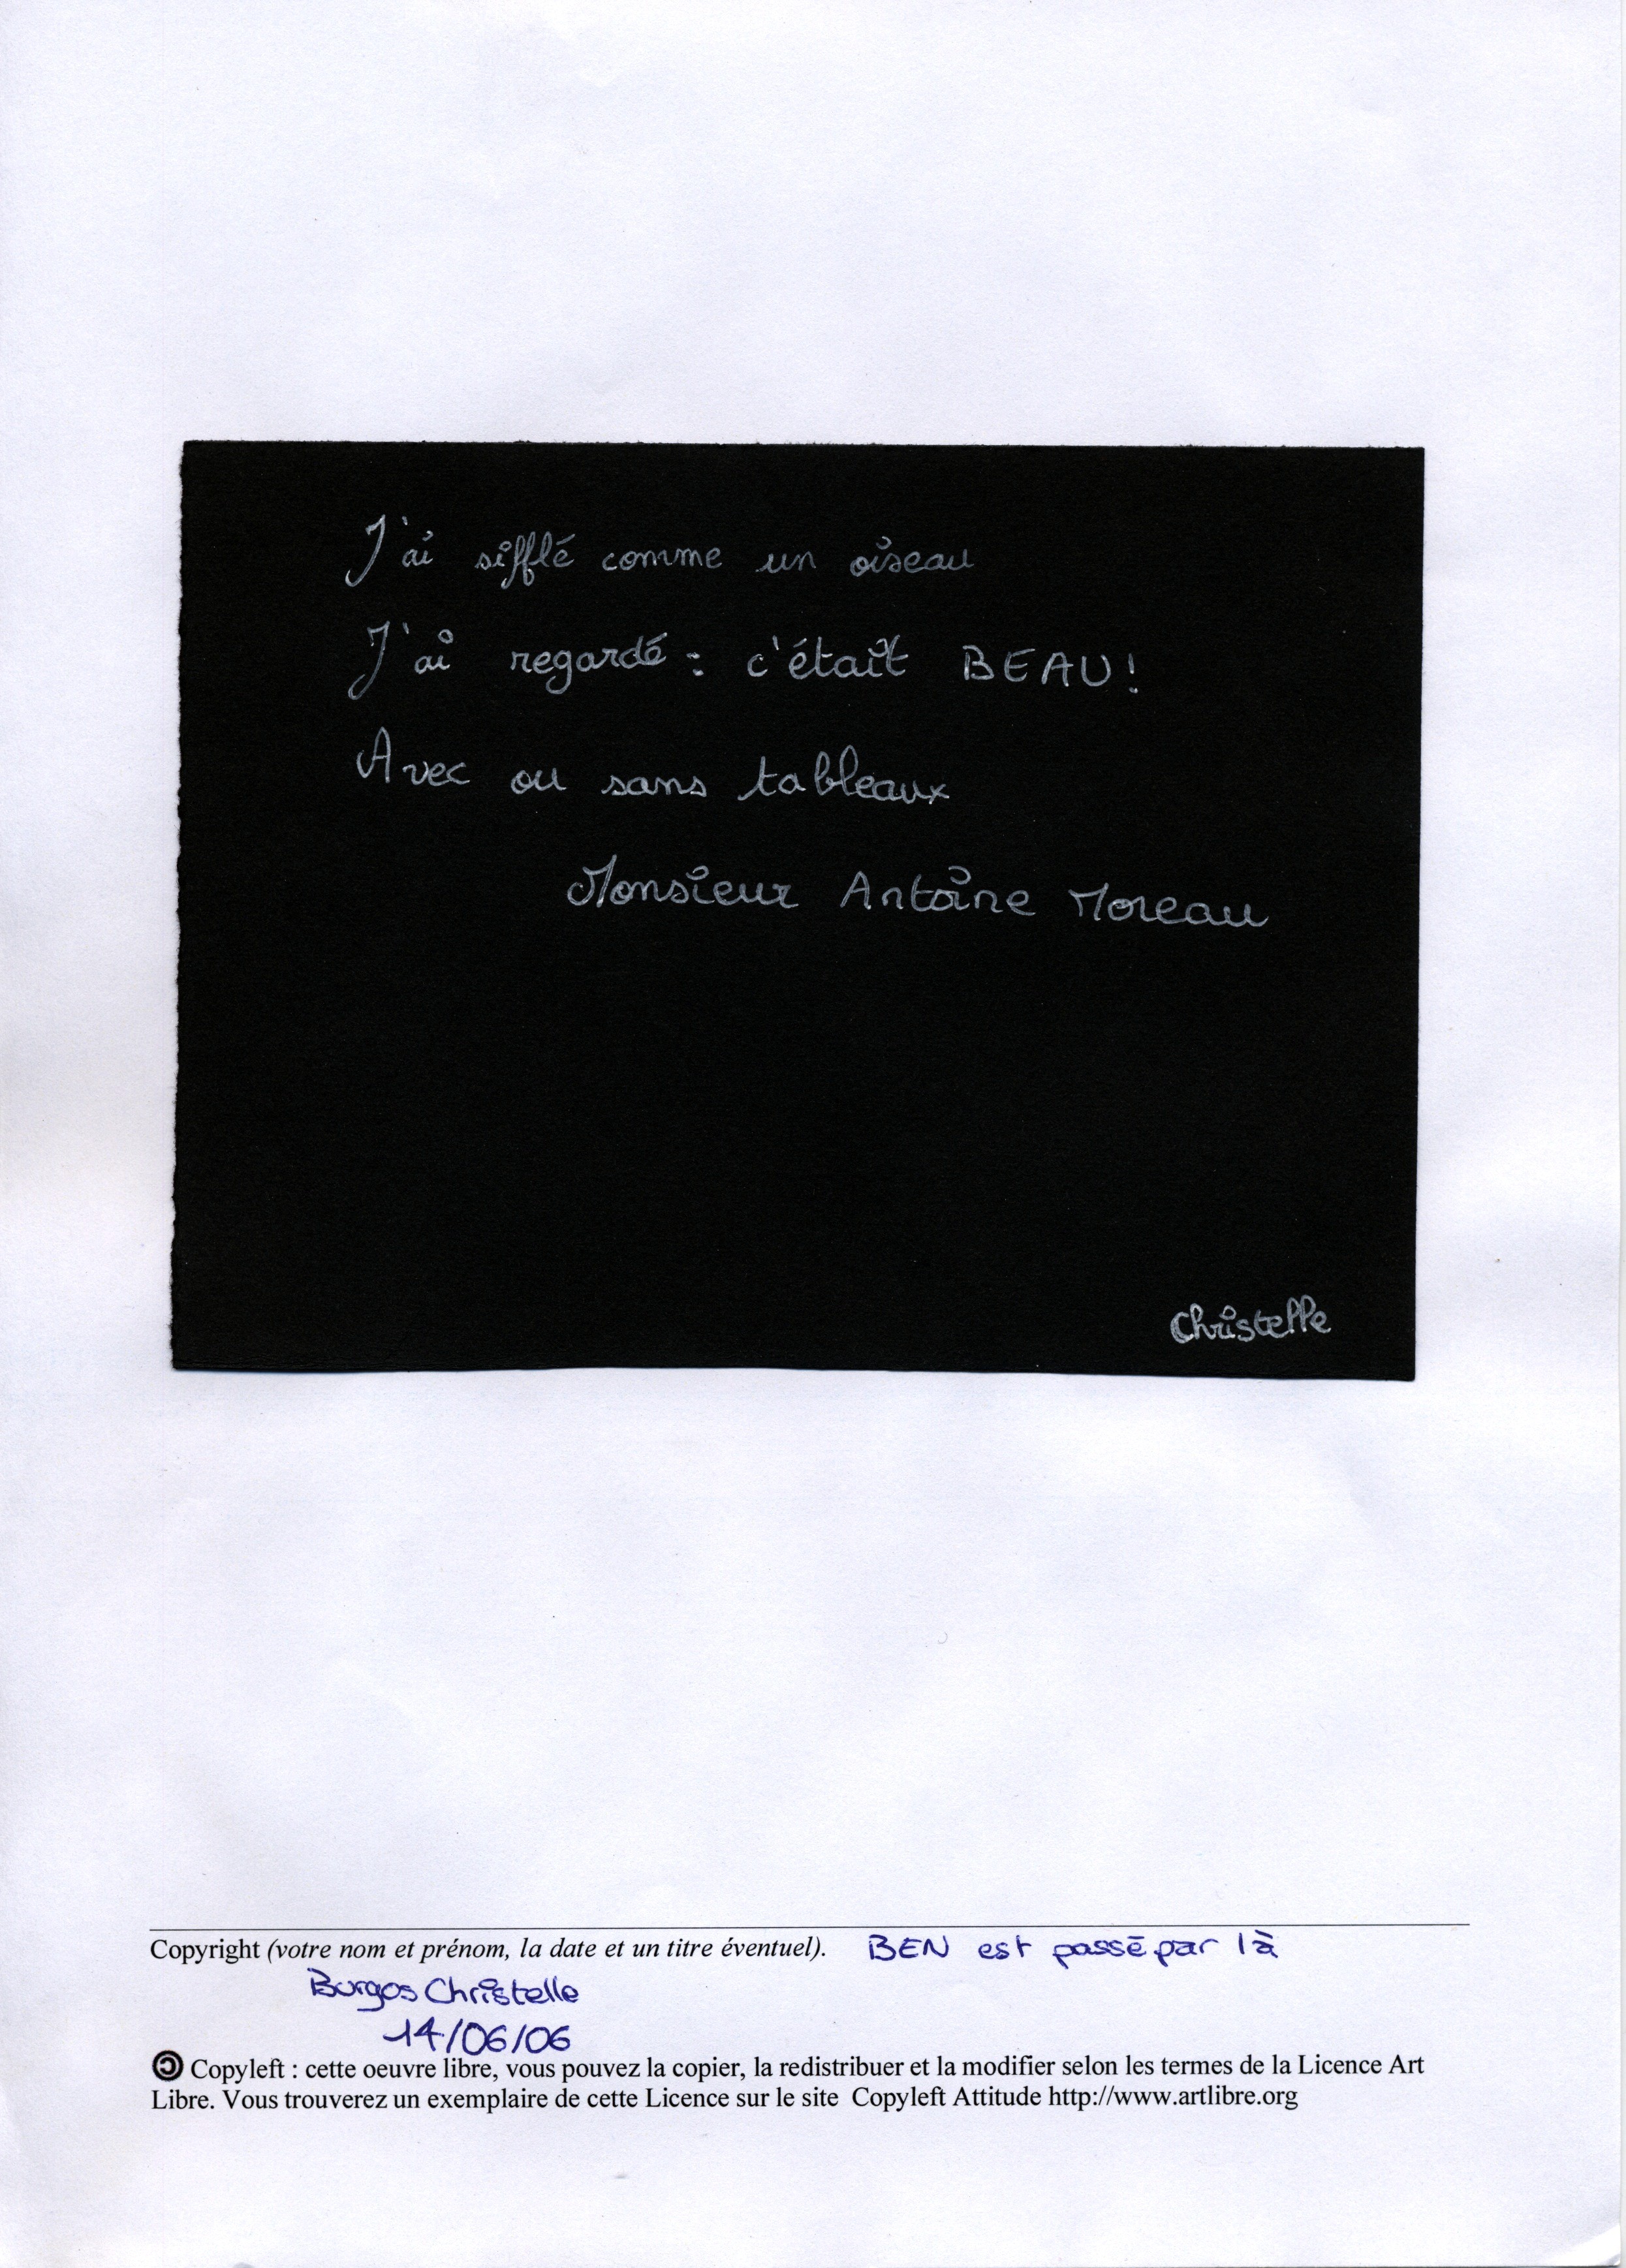 J'ai sifflé comme un oiseau
J'ai regardé : c'était BEAU !
Avec ou sans tableaux
Monsieur Antoine Moreau
Christelle
Copyright (votre nom et prénom, la date et un titre éventuel). BEN est passé par là
Burgos Christelle
14/06/06
Copyleft : cette oeuvre libre, vous pouvez la copier, la redistribuer et la modifier selon les termes de la Licence Art
Libre. Vous trouverez un exemplaire de cette Licence sur le site Copyleft Attitude http://www.artlibre.org